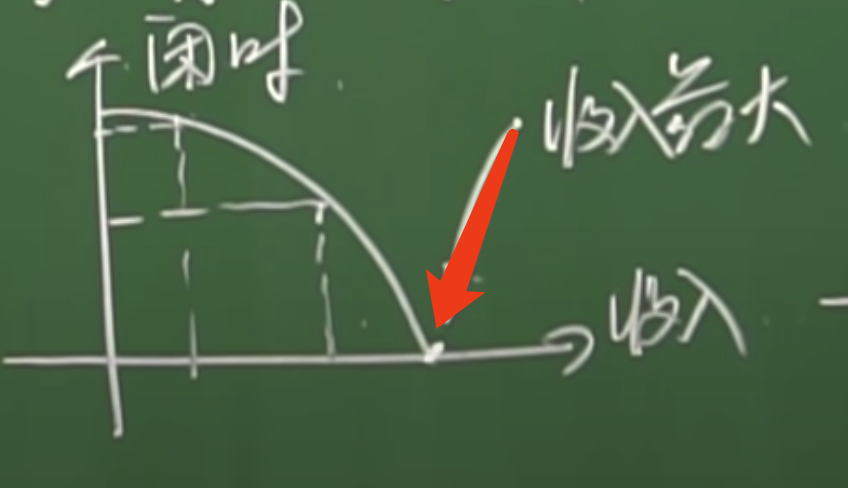 闲时
收入最大
收入